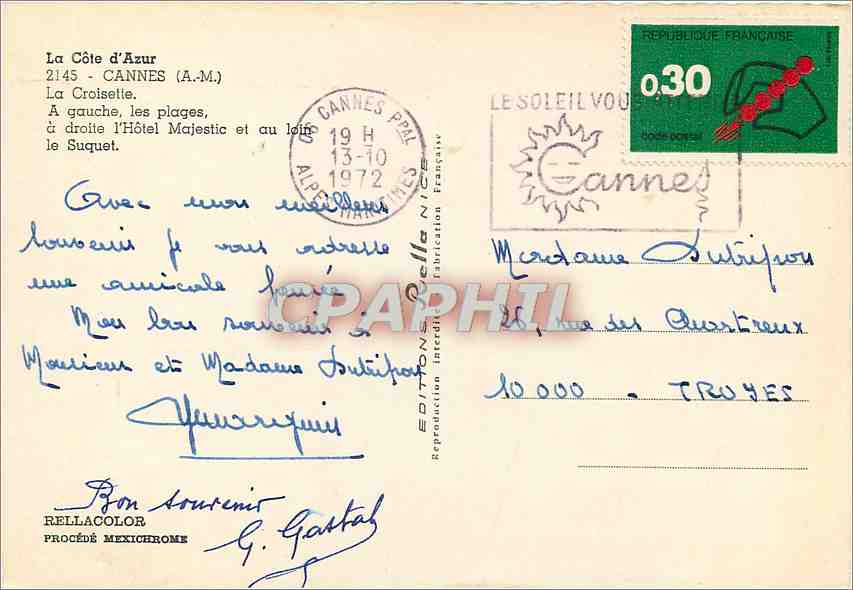 La Côte d'Azur
2145 - CANNES (A.-M.)
La Croisette.
A gauche, les plages,
à droite l'Hôtel Majestic et au loin
le Suquet.
06 CANNES PPAL
19 H
13-10
1972
ALPES MARITIMES
LE SOLEIL VOUS
Cannes
REPUBLIQUE FRANÇAISE
0,30
code postal
Avec mon meilleur
souvenir je vous adresse
une amicale pensée
Mon bon souvenir à
Monsieur et Madame Dutripon
Bon souvenir
G. Gastal
RELLACOLOR
PROCÉDÉ MEXICHROME
EDITIONS Rella NICE
Reproduction interdite Fabrication Française
Madame Dutripon
26, rue des Chartreux
10 000 - TROYES
CPAPHIL